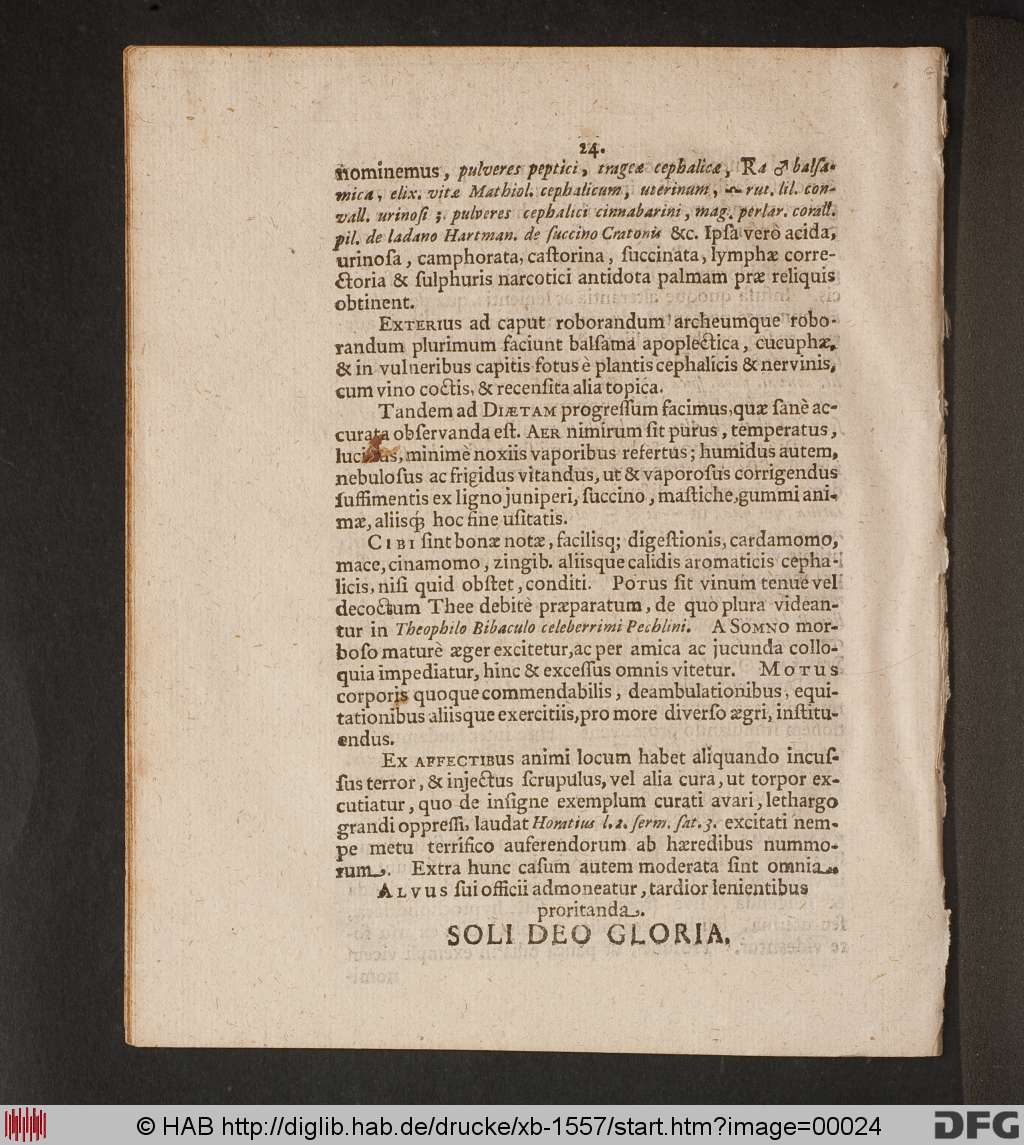 24.
nominemus, pulveres peptici, trageæ cephalicæ, Ra ♂ balſa-
mica, elix. vitæ Mathiol. cephalicum, uterinum, rut. lil. con-
vall. urinoſi; pulveres cephalici cinnabarini, mag. perlar. corall.
pil. de ladano Hartman. de ſuccino Cratonis &c. Ipſa verò acida,
urinoſa, camphorata, caſtorina, ſuccinata, lymphæ corre-
ctoria & ſulphuris narcotici antidota palmam præ reliquis
obtinent.
EXTERIUS ad caput roborandum archeumque robo-
randum plurimum faciunt balſama apoplectica, cucuphæ,
& in vulneribus capitis fotus è plantis cephalicis & nervinis,
cum vino coctis, & recenſita alia topica.
Tandem ad DIÆTAM progreſſum facimus, quæ ſanè ac-
curata obſervanda eſt. AER nimirum ſit purus, temperatus,
minimè noxiis vaporibus refertus; humidus autem,
nebuloſus ac frigidus vitandus, ut & vaporoſus corrigendus
ſuffimentis ex ligno juniperi, ſuccino, maſtiche, gummi ani-
mæ, aliisq́; hoc fine uſitatis.
CIBI ſint bonæ notæ, facilisq; digeſtionis, cardamomo,
mace, cinamomo, zingib. aliisque calidis aromaticis cepha-
licis, niſi quid obſtet, conditi. POTUS ſit vinum tenue vel
decoctum Thee debitè præparatum, de quo plura videan-
tur in Theophilo Bibaculo celeberrimi Pechlini. A SOMNO mor-
boſo maturè æger excitetur, ac per amica ac jucunda collo-
quia impediatur, hinc & exceſſus omnis vitetur. MOTUS
corporis quoque commendabilis, deambulationibus, equi-
tationibus aliisque exercitiis, pro more diverſo ægri, inſtitu-
endus.
EX AFFECTIBUS animi locum habet aliquando incuſ-
ſus terror, & injectus ſcrupulus, vel alia cura, ut torpor ex-
cutiatur, quo de inſigne exemplum curati avari, lethargo
grandi oppreſſi, laudat Horatius l. 2. ſerm. ſat. 3. excitati nem-
pe metu terrifico auferendorum ab hæredibus nummo-
rum. Extra hunc caſum autem moderata ſint omnia.
ALVUS ſui officii admoneatur, tardior lenientibus
proritanda.
SOLI DEO GLORIA.
© HAB http://diglib.hab.de/drucke/xb-1557/start.htm?image=00024
DFG